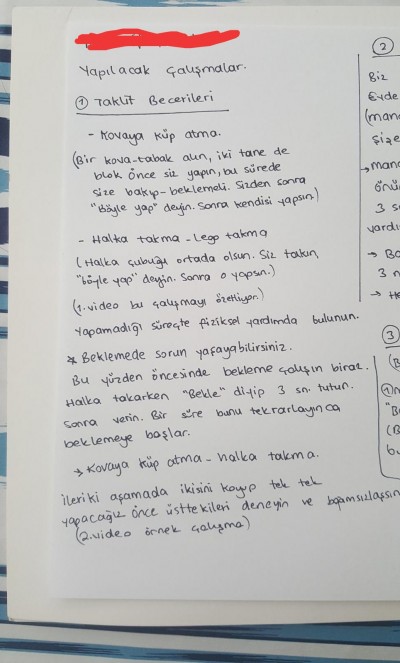 Yapılacak Çalışmalar.
① Taklit Becerileri
- Kovaya küp atma.
(Bir kova-tabak alın, iki tane de
blok önce siz yapın, bu sürede
size bakıp-beklemeli. Sizden sonra
"Böyle yap" deyin. Sonra kendisi yapsın.)
- Halka takma - Lego takma
(Halka çubuğu ortada olsun. Siz takın,
"böyle yap" deyin. Sonra o yapsın.)
(1. video bu çalışmayı özetliyor.)
Yapamadığı süreçte fiziksel yardımda bulunun.
* Beklemede sorun yaşayabilirsiniz.
Bu yüzden öncesinde bekleme çalışın biraz.
Halka takarken "Bekle" diyip 3 sn. tutun.
Sonra verin. Bir süre bunu tekrarlayınca
beklemeye başlar.
→ Kovaya küp atma - halka takma.
ileriki aşamada ikisini koyup tek tek
yapacağız önce üsttekileri deneyin ve bağımsızlaşsın
(2. video örnek çalışma)
②
Biz
Evde
(man
şize
→ man
önü
3 s
yardı
→ Ba
3 n
→ He
③
(B
①
"B
(B
bu